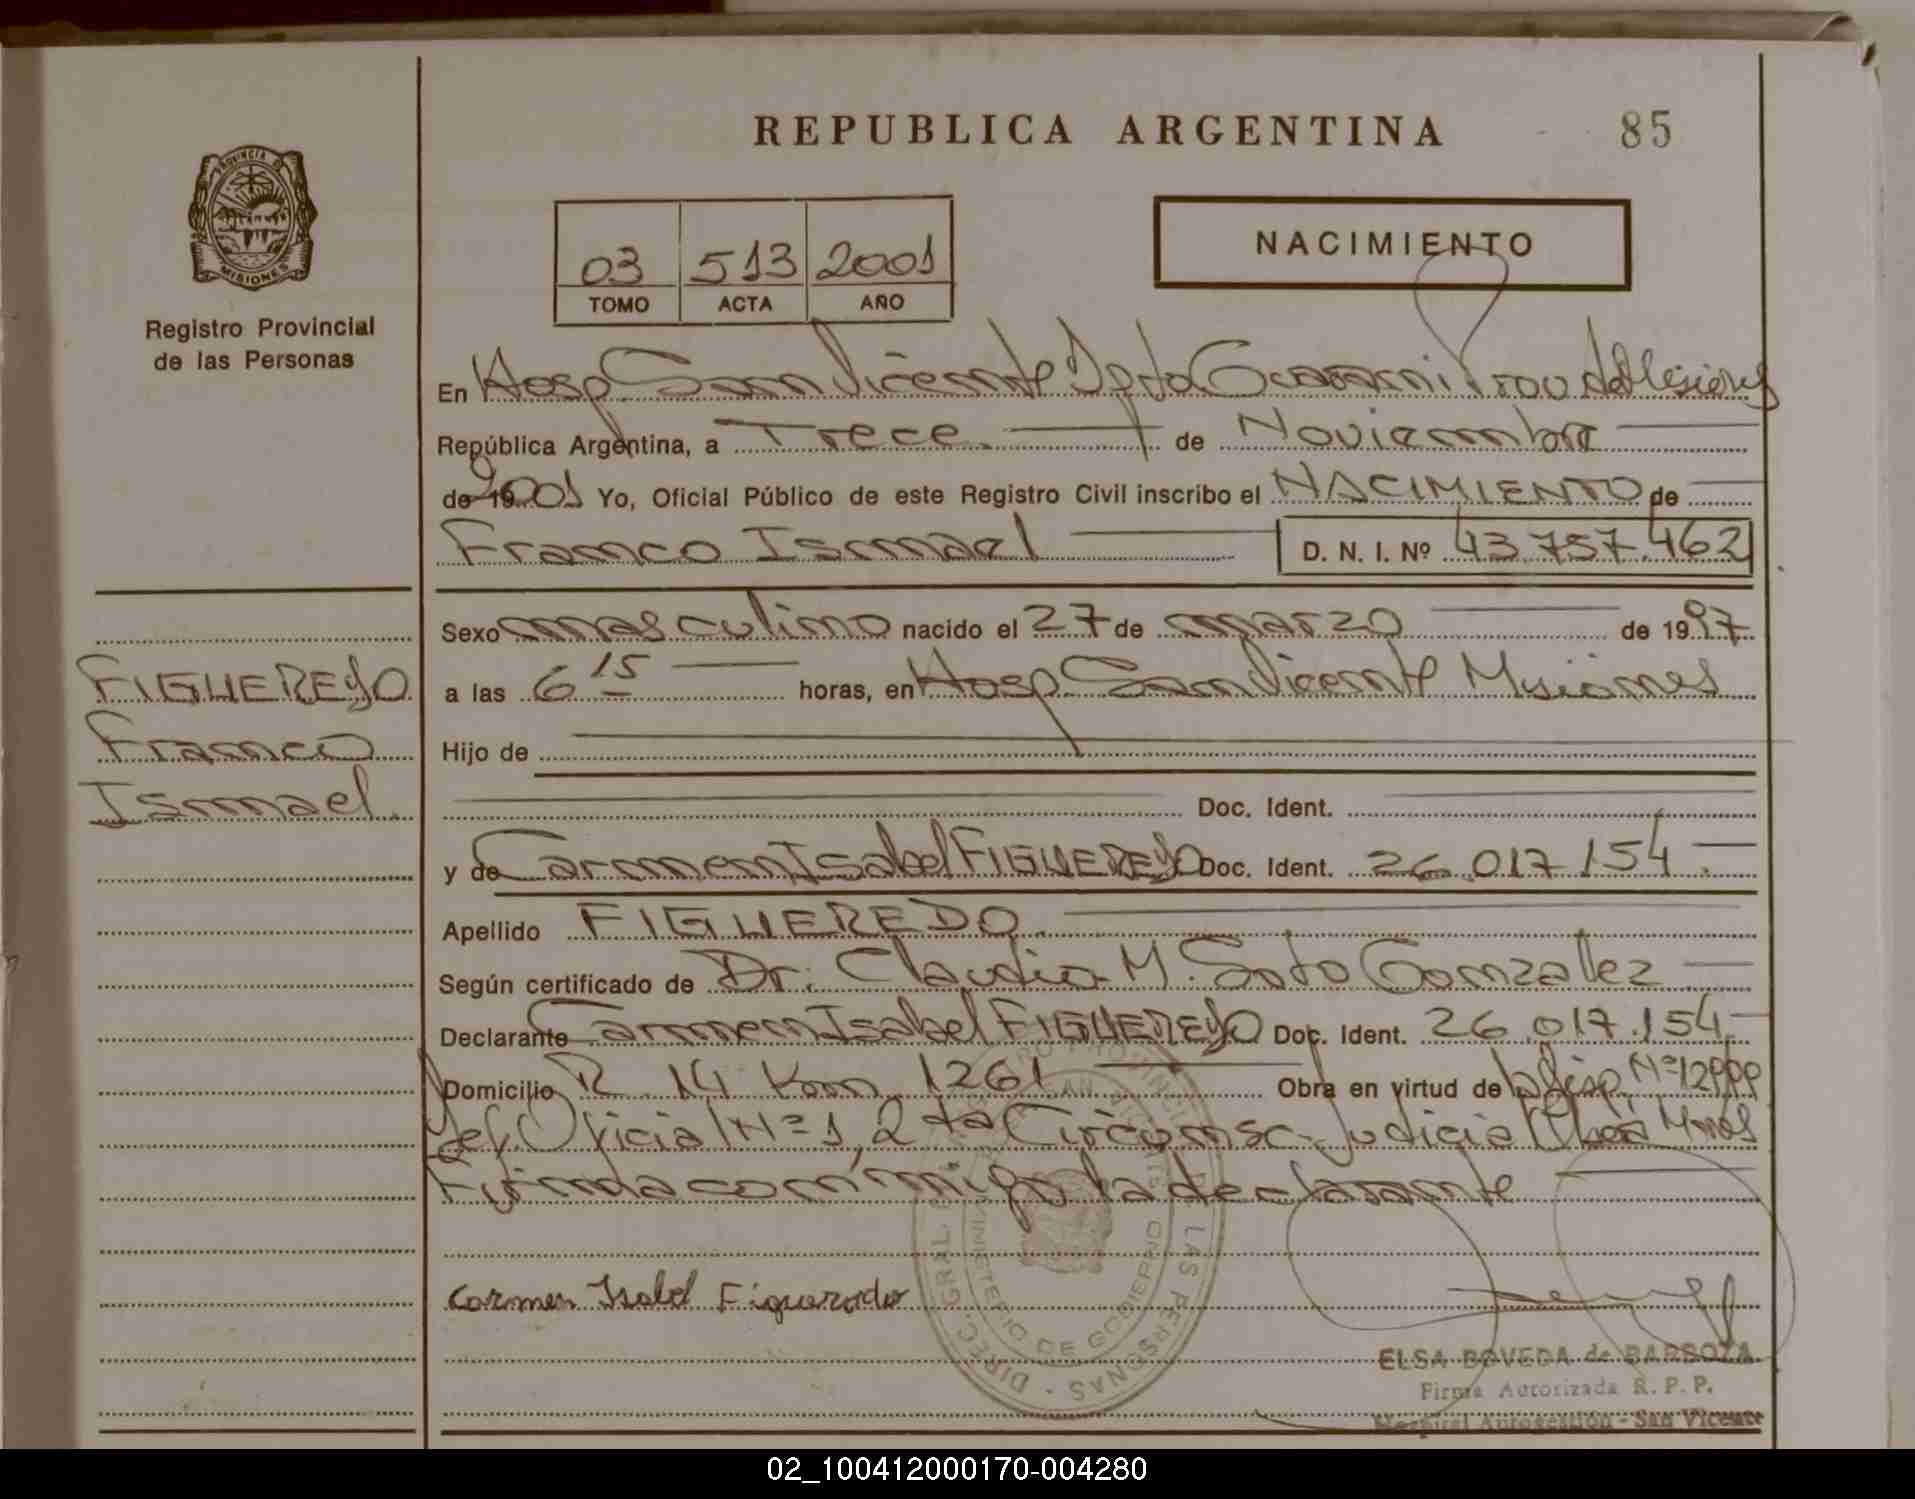 REPUBLICA ARGENTINA
85
PROVINCIA DE
MISIONES
Registro Provincial
de las Personas
03 513 2001
TOMO ACTA AÑO
NACIMIENTO
En Hosp San Vicente Dpto Guarani Prov de Misiones
República Argentina, a Trece de Noviembre
de 19 2001 Yo, Oficial Público de este Registro Civil inscribo el NACIMIENTO de
Franco Ismael D. N. I. Nº 43.757.462
Sexo masculino nacido el 27 de marzo de 1997
a las 6 15 horas, en Hosp San Vicente Misiones
Hijo de
Doc. Ident.
y de Carmen Isabel FIGUEREDO Doc. Ident. 26.017.154
Apellido FIGUEREDO
Según certificado de Dr. Claudio M. Soto Gonzalez
Declarante Carmen Isabel FIGUEREDO Doc. Ident. 26.017.154
Domicilio R. 14 Km 1261 Obra en virtud de la Disp. Nº
Def. Oficial Nº 1, 2da Circunsc. Judicial Oberá Mnes
Firma conmigo la declarante
Carmen Isabel Figueredo
ELSA BOVEDA de BARBOZA
Firma Autorizada R. P. P.
Hospital Autogestión - San Vicente
FIGUEREDO
Franco
Ismael.
DIREC. GRAL. LAS PERSONAS
MINISTERIO DE GOBIERNO
02_100412000170-004280